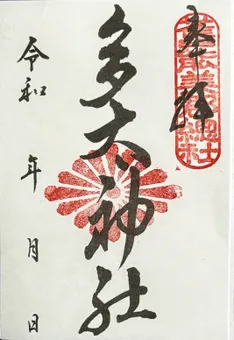 奉拝
多太神社
令和 年 月 日